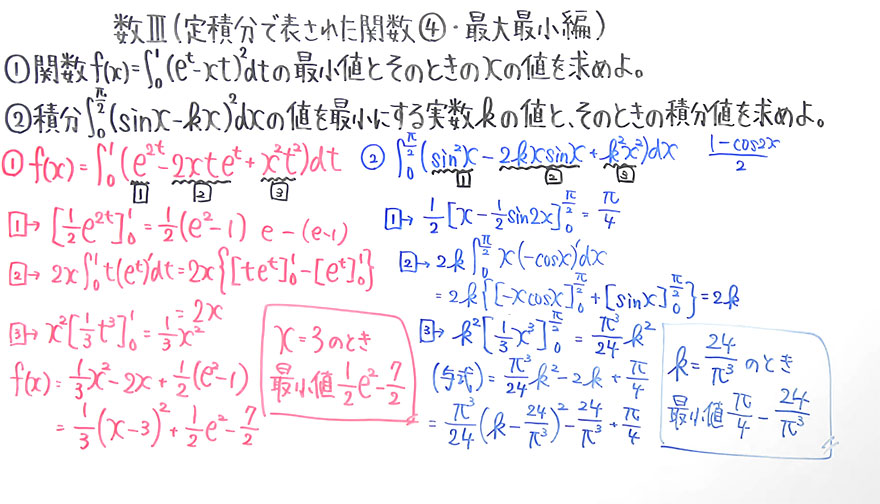 数Ⅲ(定積分で表された関数④・最大最小編)
①関数f(x)=∫₀¹(eᵗ-xt)²dtの最小値とそのときのxの値を求めよ。
②積分∫₀^{π/2}(sinx-kx)²dxの値を最小にする実数kの値と、そのときの積分値を求めよ。
① f(x)=∫₀¹(e^{2t}-2xteᵗ+x²t²)dt
1 2 3
1→ [1/2 e^{2t}]₀¹=1/2(e²-1) e-(e-1)
2→ 2x∫₀¹t(eᵗ)'dt=2x{[teᵗ]₀¹-[eᵗ]₀¹}
=2x
3→ x²[1/3 t³]₀¹=1/3 x²
f(x)=1/3 x²-2x+1/2(e²-1)
=1/3(x-3)²+1/2 e²-7/2
x=3のとき
最小値 1/2 e²-7/2
② ∫₀^{π/2}(sin²x-2kxsinx+k²x²)dx (1-cos2x)/2
1 2 3
1→ 1/2[x-1/2 sin2x]₀^{π/2}=π/4
2→ 2k∫₀^{π/2}x(-cosx)'dx
=2k{[-xcosx]₀^{π/2}+[sinx]₀^{π/2}}=2k
3→ k²[1/3 x³]₀^{π/2}=π³/24 k²
(与式)=π³/24 k²-2k+π/4
=π³/24(k-24/π³)²-24/π³+π/4
k=24/π³のとき
最小値 π/4-24/π³